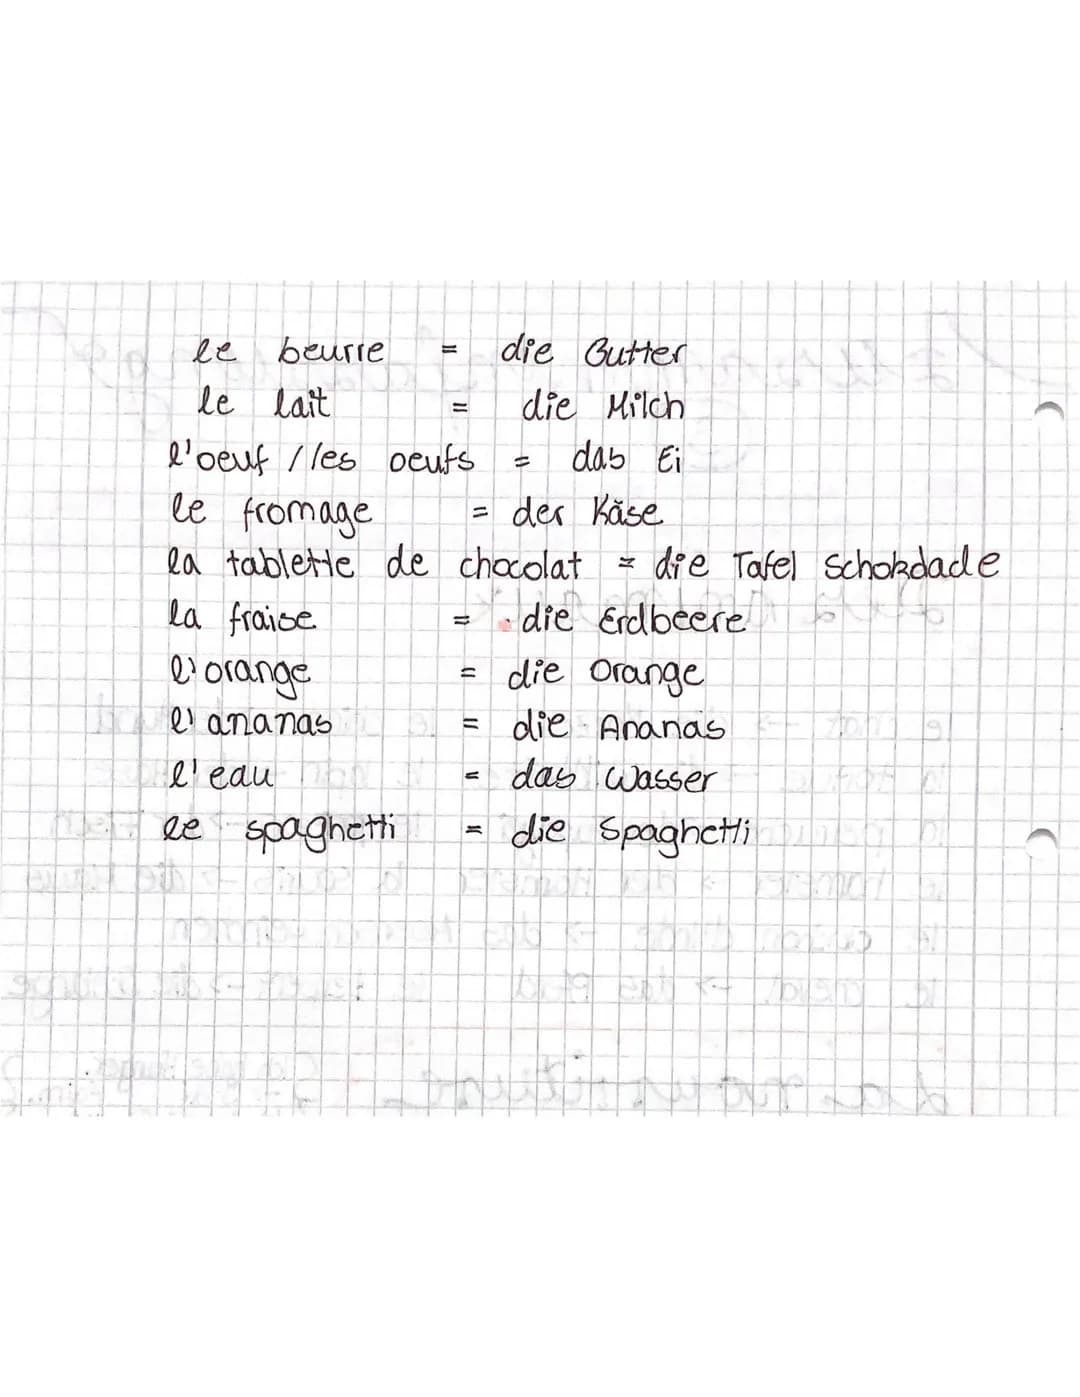 le beurre = die Butter
le lait = die Milch
l'oeuf / les oeufs = das Ei
le fromage = der Käse
la tablette de chocolat = die Tafel Schokolade
la fraise = die Erdbeere
l'orange = die Orange
l'ananas = die Ananas
l'eau = das Wasser
le spaghetti = die Spaghetti